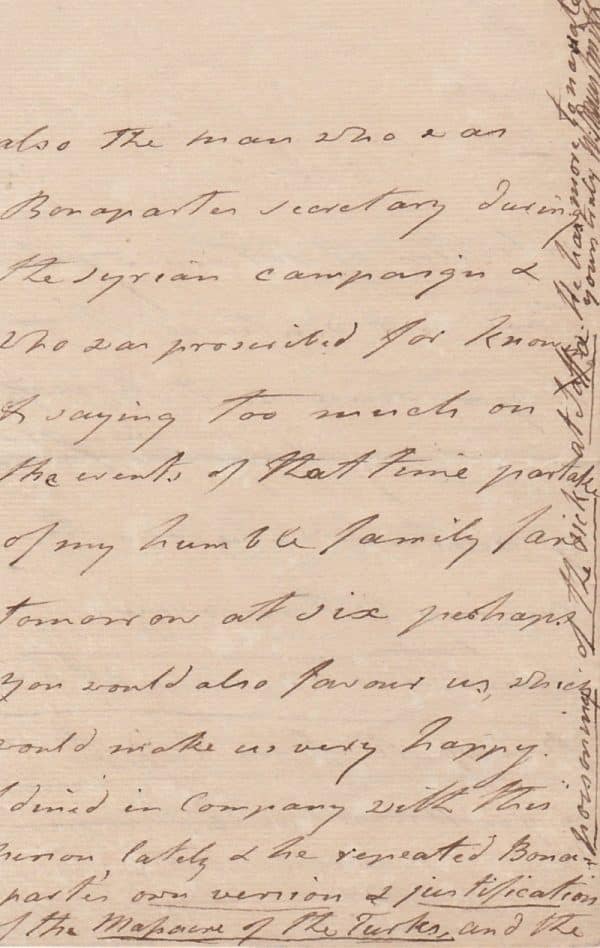 also the man who was
Bonapartes secretary during
the syrian campaign &
who was proscribed for knowing
& saying too much on
the events of that time partake
of my humble family fare
tomorrow at six perhaps
you would also favour us, which
would make us very happy.
I dined in Company with this
person lately & he repeated Bona-
parte's own version & justification
of the Massacre of the Turks, and the
poisoning of the sick at Jaffa. He has more
yours truly W. Sidney Smith